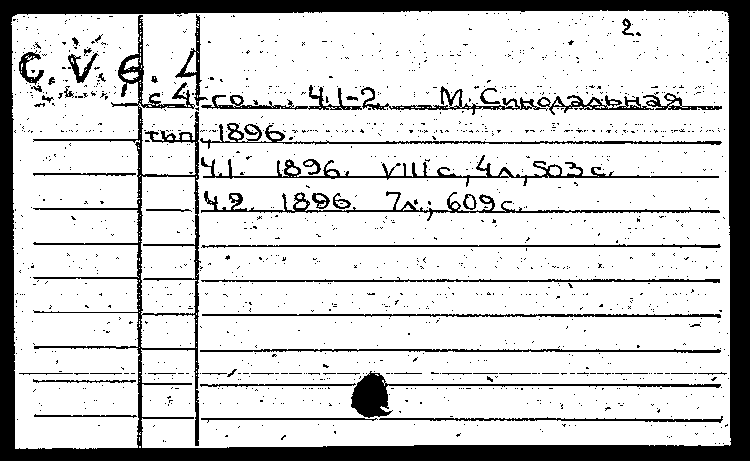 2.
C. V 6. 4
с 4-го... Ч.1-2 М., Синодальная
тип., 1896.
Ч.1. 1896. VIII с., 4 л., 503 с.
Ч.2. 1896. 7 л.; 609 с.